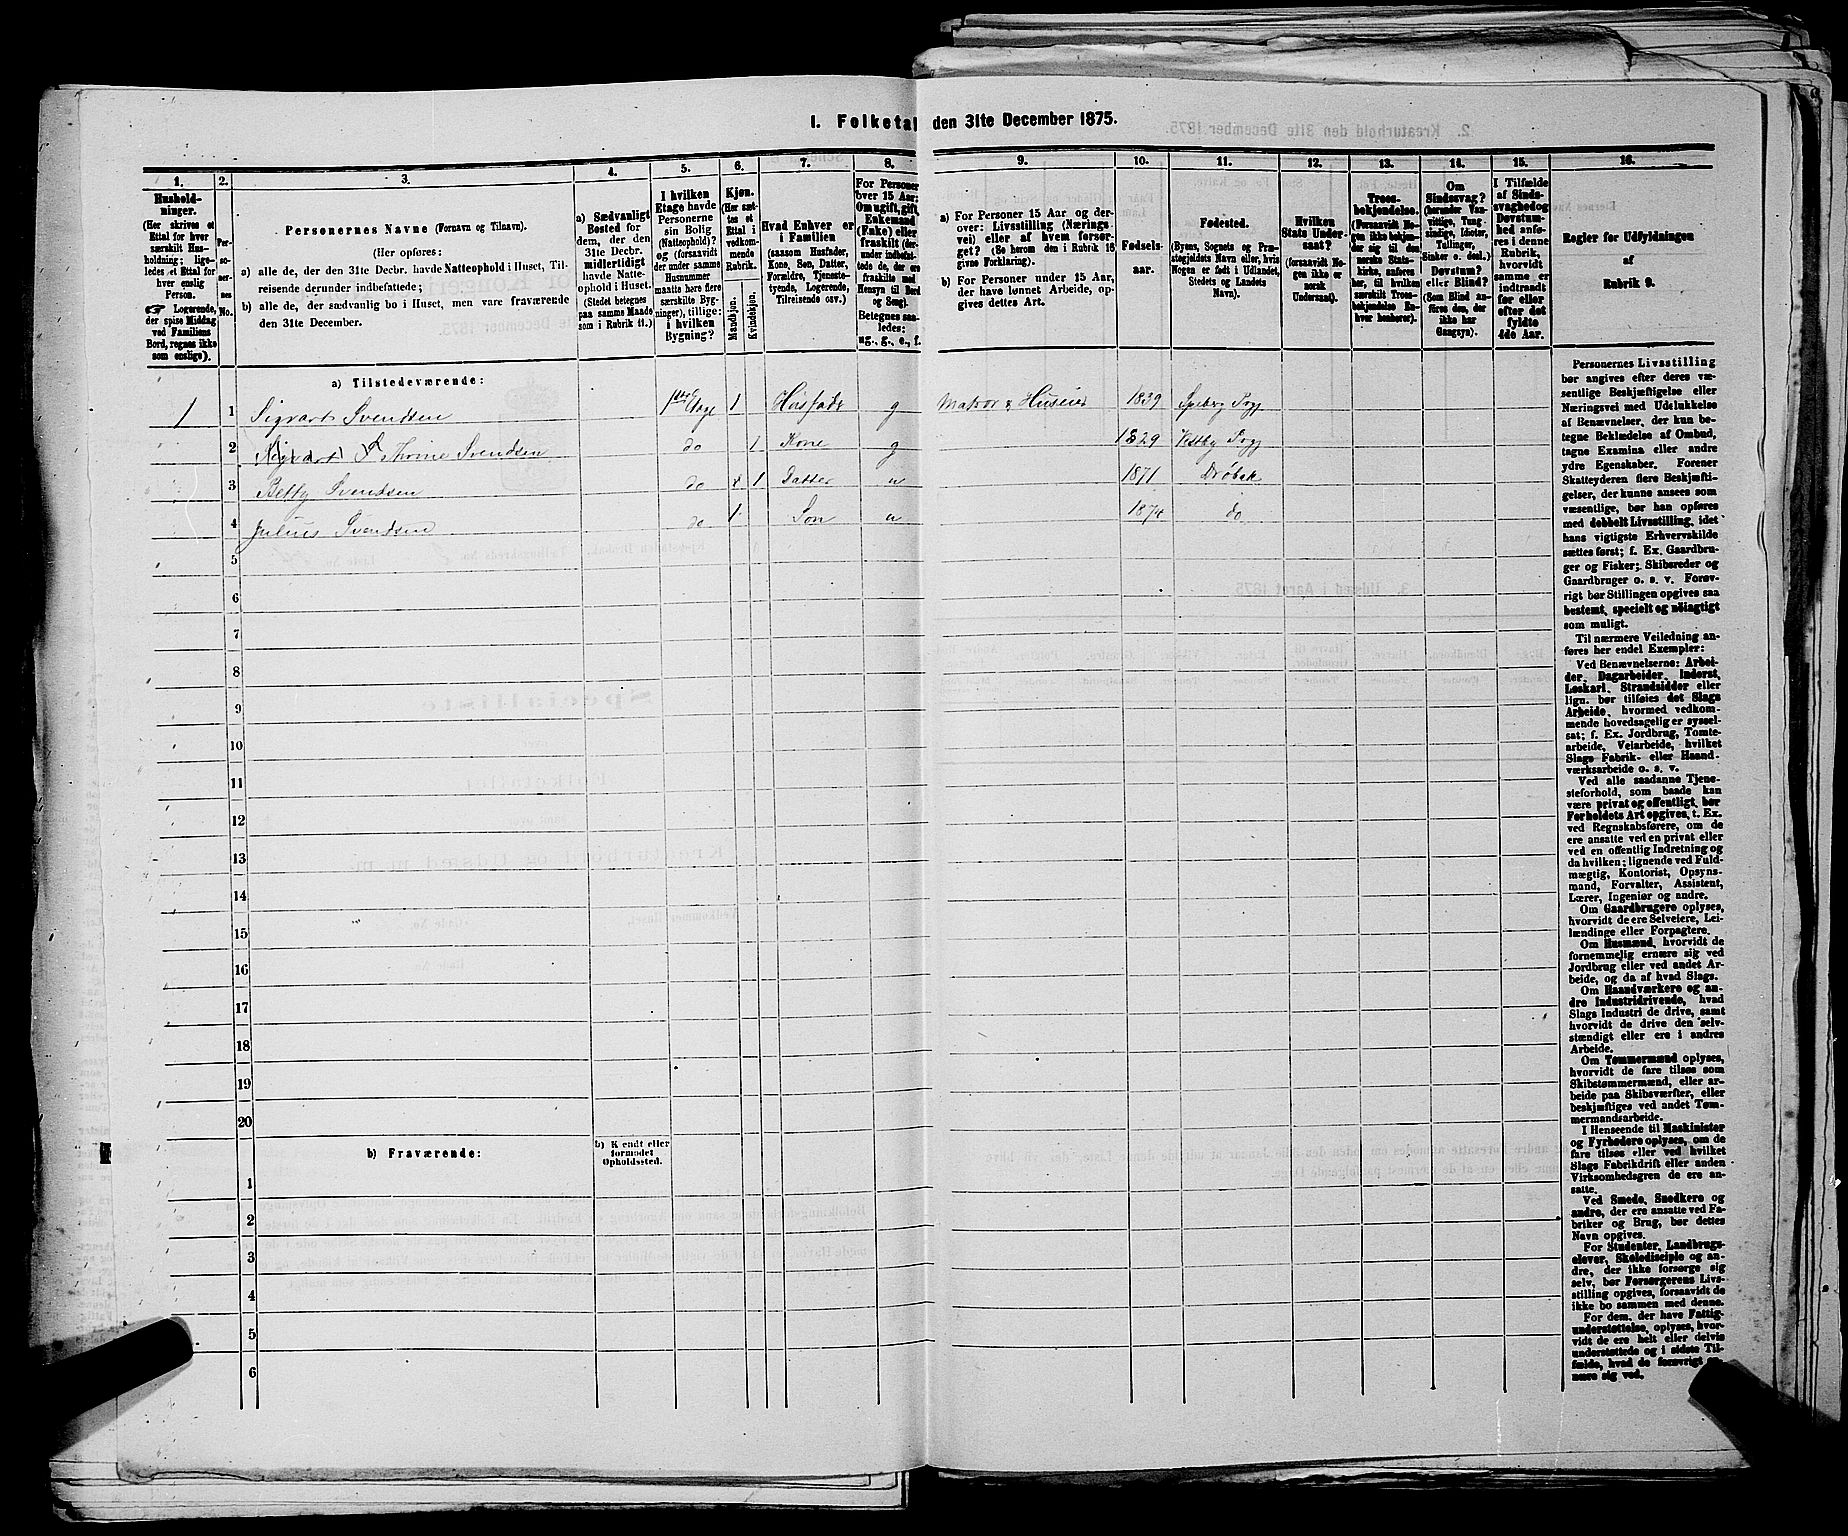 I. Folketal den 31te December 1875.
1.
Husholdninger.
(Her skrives et
Ettal for hver
særskilt Husholdning;
ligeledes et Ettal for
hver enslig
Person.
☞ Logerende,
der spise Middag
ved Familiens
Bord, regnes ikke
som enslige).
2.
Personernes
No.
3.
Personernes Navne (Fornavn og Tilnavn).
(Her opføres:
a) alle de, der den 31te Decbr. havde Natteophold i Huset, Tilreisende derunder indbefattede;
b) alle de, der sædvanlig bo i Huset, men vare fraværende
den 31te December.
4.
a) Sædvanligt
Bosted for
dem, der den
31te Decbr.
midlertidigt
havde Natteophold i Huset.
(Stedet betegnes
paa samme Maade
som i Rubrik 11.)
5.
I hvilken
Etage havde
Personerne
sin Bolig
(Natteophold)?
og (forsaavidt
der under samme
Husnummer
maatte høre flere
særskilte Bygninger), tillige:
i hvilken
Bygning?
6.
Kjøn.
(Her sættes et
Ettal i
vedkommende
Rubrik.
Mandkjøn.
Kvindekjøn.
7.
Hvad Enhver er
i Familien
(saasom Husfader,
Kone, Søn, Datter,
Forældre, Tjenestetyende, Logerende,
Tilreisende osv.)
8.
For Personer
over 15 Aar:
Om ugift, gift,
Enkemand
(Enke) eller
fraskilt
Betegnes saaledes:
ug., g., e., f.
9.
a) For Personer 15 Aar og derover: Livsstilling (Næringsvei) eller af hvem forsørget? (Se herom den i Rubrik 16
givne Forklaring).
b) For Personer under 15 Aar,
der have lønnet Arbeide, opgives dettes Art.
10.
Fødselsaar.
11.
Fødested.
(Byens, Sognets og Præstegjeldets Navn eller, hvis
Nogen er født i Udlandet,
Stedets og Landets
Navn).
12.
Hvilken
Stats Undersaat?
(forsaavidt Nogen ikke er
norsk
Undersaat).
13.
Troesbekjendelse.
(Forsaavidt Nogen ikke bekjender sig til den
norske Statskirke, anføres
her, til hvilken
særskilt Troesbekjendelse Enhver henhører).
14.
Om
Sindssvag?
(herunder Vanvittige, Tungsindige, Idioter,
Tullinger,
Sinker o. desl.)
Døvstum?
eller Blind?
(Som Blind anføres den, der
ikke har
Gangsyn).
15.
I Tilfælde
af Sindssvaghed og
Døvstumhed anføres i denne
Rubrik,
hvorvidt
samme er
indtraadt
før eller
efter det
fyldte
4de Aar.
16.
Regler for Udfyldningen
af
Rubrik 9.
a) Tilstedeværende:
1 1 Sigvart Svendsen 1ste Etage 1 Husfader g Matros & Huseier 1839
2 Thrine Svendsen do 1 Kone g 1829 Vestby Prgj
3 Betty Svendsen do 1 Datter u 1871 Drøbak
4 Julius Svendsen do 1 Søn u 1874 do
5
6
7
8
9
10
11
12
13
14
15
16
17
18
19
20
b) Fraværende:
b) Kendt eller
formodet
Opholdssted.
1
2
3
4
5
6
Personernes Livsstilling
bør angives efter deres væsentlige Beskjæftigelse eller
Næringsvei med Udelukkelse
af Benævnelser, der kun betegne Beklædelse af Ombud,
tagne Examina eller andre
ydre Egenskaber. Forener
Skatteyderen flere Beskjæftigelser, der kunne ansees som
væsentlige, bør han opføres
med dobbelt Livsstilling, idet
hans vigtigste Erhvervskilde
sættes først; f. Ex. Gaardbruger og Fisker; Skibsreder og
Gaardbruger o. s. v. Forøvrigt bør Stillingen opgives saa
bestemt, specielt og nøiagtigt
som muligt.
Til nærmere Veiledning anføres her endel Exempler:
Ved Benævnelserne: Arbeider, Dagarbeider, Inderst,
Løskarl, Strandsidder eller
lign. bør tilføies det Slags
Arbeide, hvormed vedkommende hovedsagelig er sysselsat; f. Ex. Jordbrug, Tomtearbeide, Veiarbeide, hvilket
Slags Fabrik- eller Haandværksarbeide o. s. v.
Ved alle saadanne Tjenesteforhold, som baade kan
være privat og offentligt, bør
Forholdets Art opgives, t. Ex.
ved Regnskabsførere, om de
ere ansatte ved en privat eller
ved en offentlig Indretning og
da hvilken; lignende ved Fuldmægtig, Kontorist, Opsynsmand, Forvalter, Assistent,
Lærer, Ingeniør og andre.
Om Gaardbrugere oplyses,
hvorvidt de ere Selveiere, Leilændinge eller Forpagtere.
Om Husmænd, hvorvidt de
fornemmelig ernære sig ved
Jordbrug eller ved andet Arbeide, og da af hvad Slags.
Om Haandværkere og andre Industridrivende, hvad
Slags Industri de drive, samt
hvorvidt de drive den selvstændigt eller ere i andres
Arbeide.
Om Tømmermænd oplyses,
hvorvidt de fare tilsøs som
Skibstømmermænd, eller arbeide paa Skibsværfter, eller
beskjæftiges ved andet Tømmermandsarbeide.
I Henseende til Maskinister
og Fyrbødere oplyses, om de
fare tilsøs eller ved hvilket
Slags Fabrikdrift eller anden
Virksomhedsgren de ere ansatte.
Ved Smede, Snedkere og
andre, der ere ansatte ved Fabriker og Brug, bør dettes
Navn opgives.
For Studenter, Landbrugselever, Skoledisciple og andre, der ikke forsørge sig
selv, bør Forsørgerens Livsstilling opgives, forsaavidt de
ikke bo sammen med denne.
For dem, der have Fattigunderstøttelse, oplyses, hvorvidt de ere helt eller delvis
understøttede og i sidste Tilfælde, hvad de forøvrigt ernære sig ved.